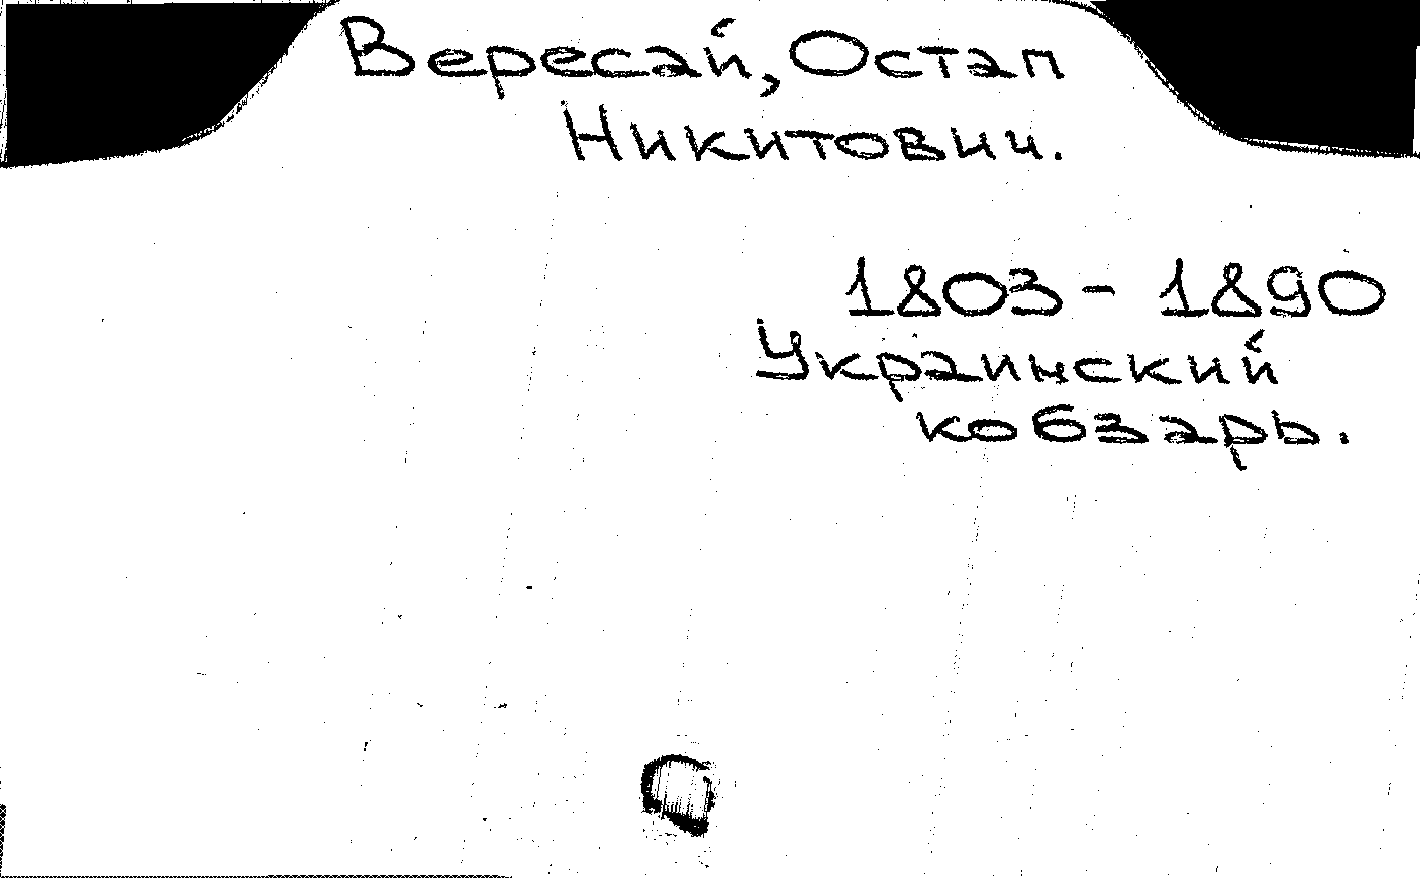 Вересай, Остап
Никитович.
1803 - 1890
Украинский
кобзарь.